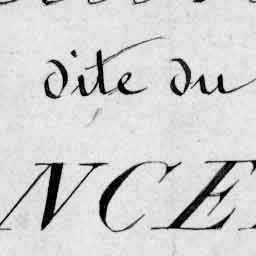 dite du
NCE